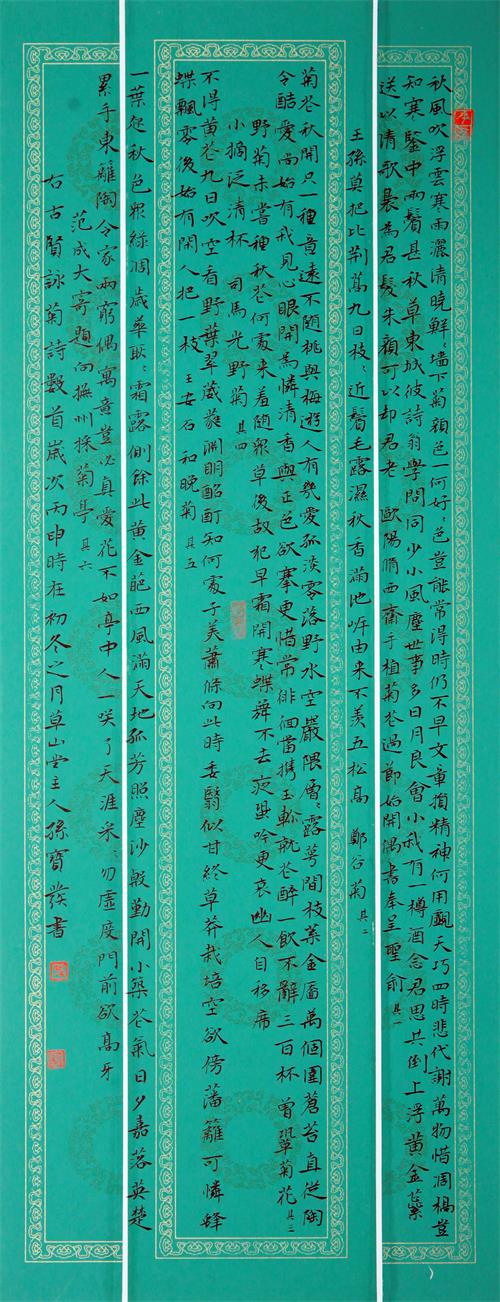 秋風吹浮雲寒雨灑清曉鮮々墻下菊顏色一何好々色豈能常得時仍不早文章損精神何用覷天巧四時悲代謝萬物惜凋槁豈
知寒鑒中兩鬢甚秋草東城彼詩翁學問同少小風塵世事多日月良會小我有一樽酒念君思共倒上浮黃金蘂
送以清歌裊為君發朱顏可以却君老 歐陽脩西齋手植菊花過節始開偶書奉呈聖俞 其一
王孫莫把比荊蒿九日枝々近鬢毛露濕秋香滿池岸由来不羨五松高 鄭谷菊 其二
菊花秋開只一種意遠不随桃與梅遊人有幾愛孤淡零落野水空巖隈層々露萼間枝葉金靨萬個圍蒼苔直從陶
令酷愛尚始有我見心眼開為憐清香與正色欲搴更惜常徘徊當携玉軫就花醉一飲不辭三百杯 曾鞏菊花 其三
野菊未嘗種秋花何處来羞随眾草後故犯早霜開寒蝶舞不去夜蛩吟更哀幽人自移席
小摘泛清杯 司馬光野菊 其四
不得黃花九日吹空看野葉翠葳蕤淵明酩酊知何處子美蕭條向此時委翳似甘終草莽栽培空欲傍藩籬可憐蜂
蝶飄零後始有閑人把一枝 王安石 和晚菊 其五
一葉起秋色眾綠凋歲華耿々霜露側餘此黃金葩西風滿天地孤芳照塵沙殷勤開小築花氣日夕嘉落英楚
累手東籬陶令家兩窮偶寓意豈必真愛花不如亭中人一咲了天涯采々勿虛度門前欲高牙
范成大寄題向撫州採菊亭 其六
右古賢詠菊詩數首歲次丙申時在初冬之月草山堂主人孫寶發書